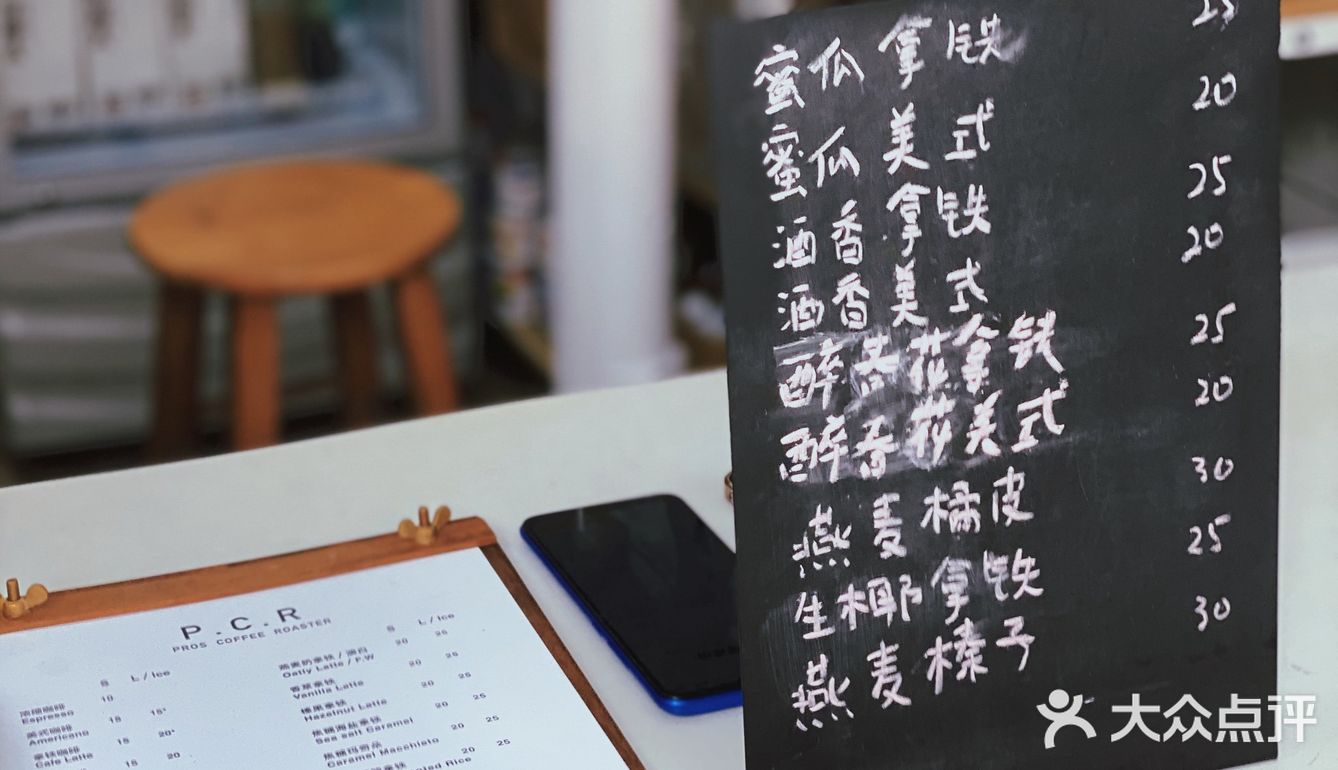 蜜瓜拿铁 25
蜜瓜美式 20
酒香拿铁 25
酒香美式 20
醉春花拿铁 25
醉春花美式 20
燕麦橘皮 30
生椰拿铁 25
燕麦榛子 30
P.C.R
PROS COFFEE ROASTER
S L / Ice
浓缩咖啡 10
Espresso
美式咖啡 15 15*
Americano
拿铁咖啡 15 20*
Cafe Latte
15 20
S L / Ice
燕麦奶拿铁 / 澳白 20 25
Oatly Latte / F.W
香草拿铁 20 25
Vanilla Latte
榛果拿铁 20 25
Hazelnut Latte
焦糖海盐拿铁 20 25
Sea salt Caramel
焦糖玛奇朵 20 25
Caramel Macchiato
大众点评